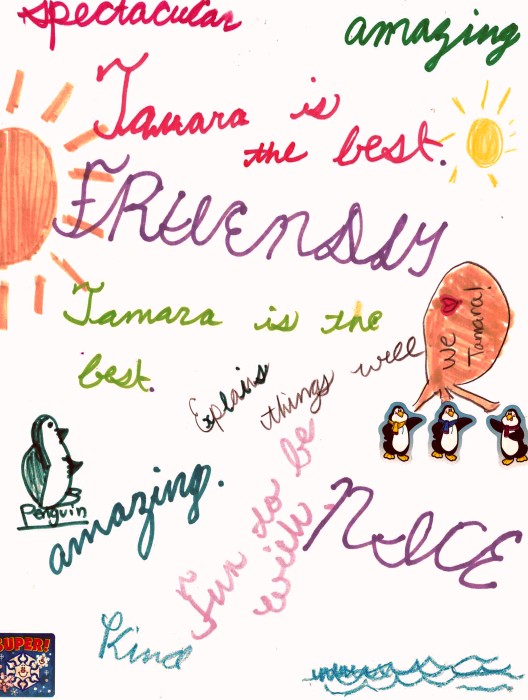 spectacular
amazing
Tamara is
the best.
FRIENDLY
Tamara is the
best.
We ♥
Tamara!
Explains
things well
Penguin
amazing.
Fun to be
with.
NICE
Kind
SUPER!